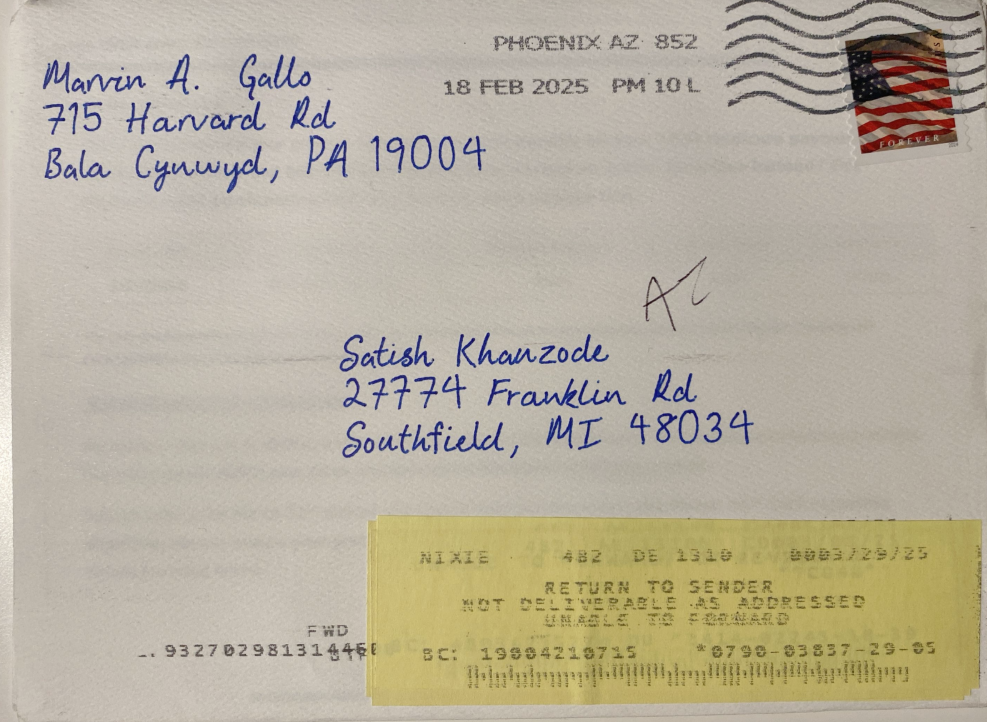 Marvin A. Gallo
715 Harvard Rd
Bala Cynwyd, PA 19004
PHOENIX AZ 852
18 FEB 2025 PM 10 L
FOREVER
AZ
Satish Khanzode
27774 Franklin Rd
Southfield, MI 48034
NIXIE 482 DE 1310 0003/29/25
RETURN TO SENDER
NOT DELIVERABLE AS ADDRESSED
UNABLE TO FORWARD
FWD
BC: 19004210715 *0790-03837-29-05